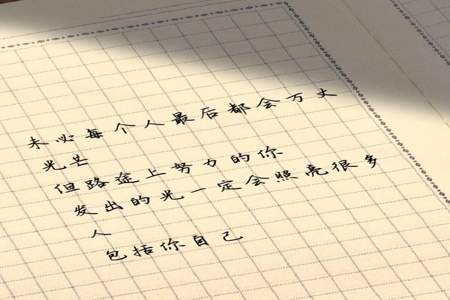 未必每个人最后都会万丈
光芒
但路途上努力的你
发出的光一定会照亮很多
人
包括你自己